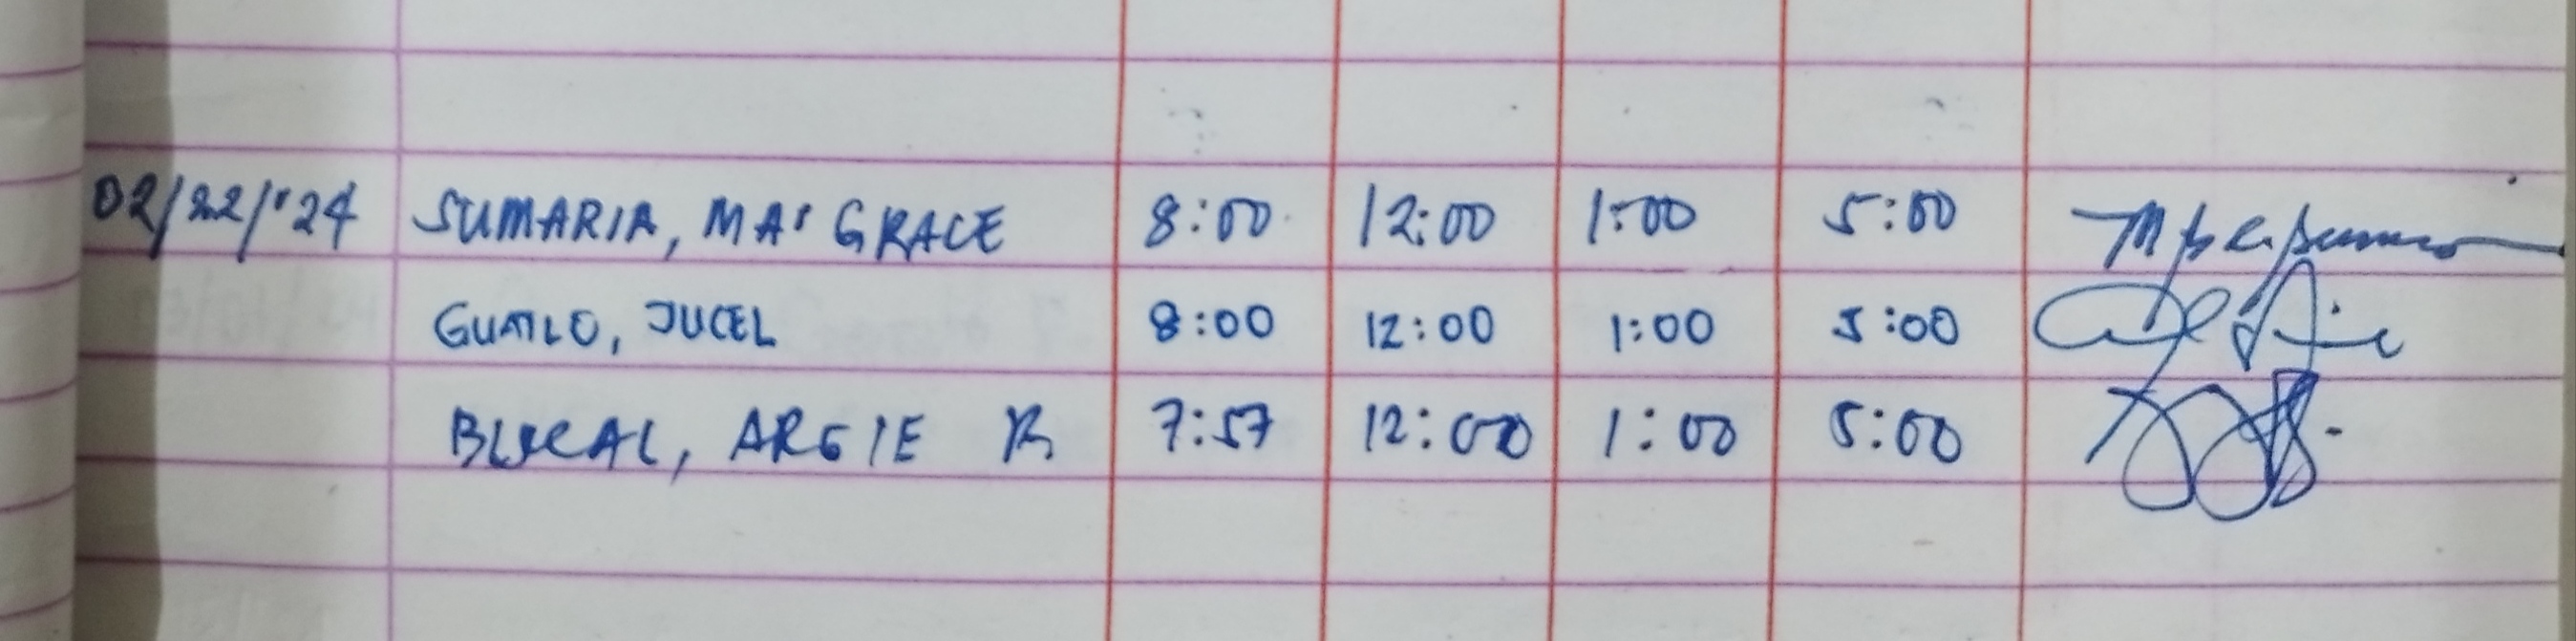 02/22/'24 SUMARIA, MA' GRACE 8:00 12:00 1:00 5:00
JUCEL 8:00 12:00 1:00 5:00
ARGIE R 7:57 12:00 1:00 5:00